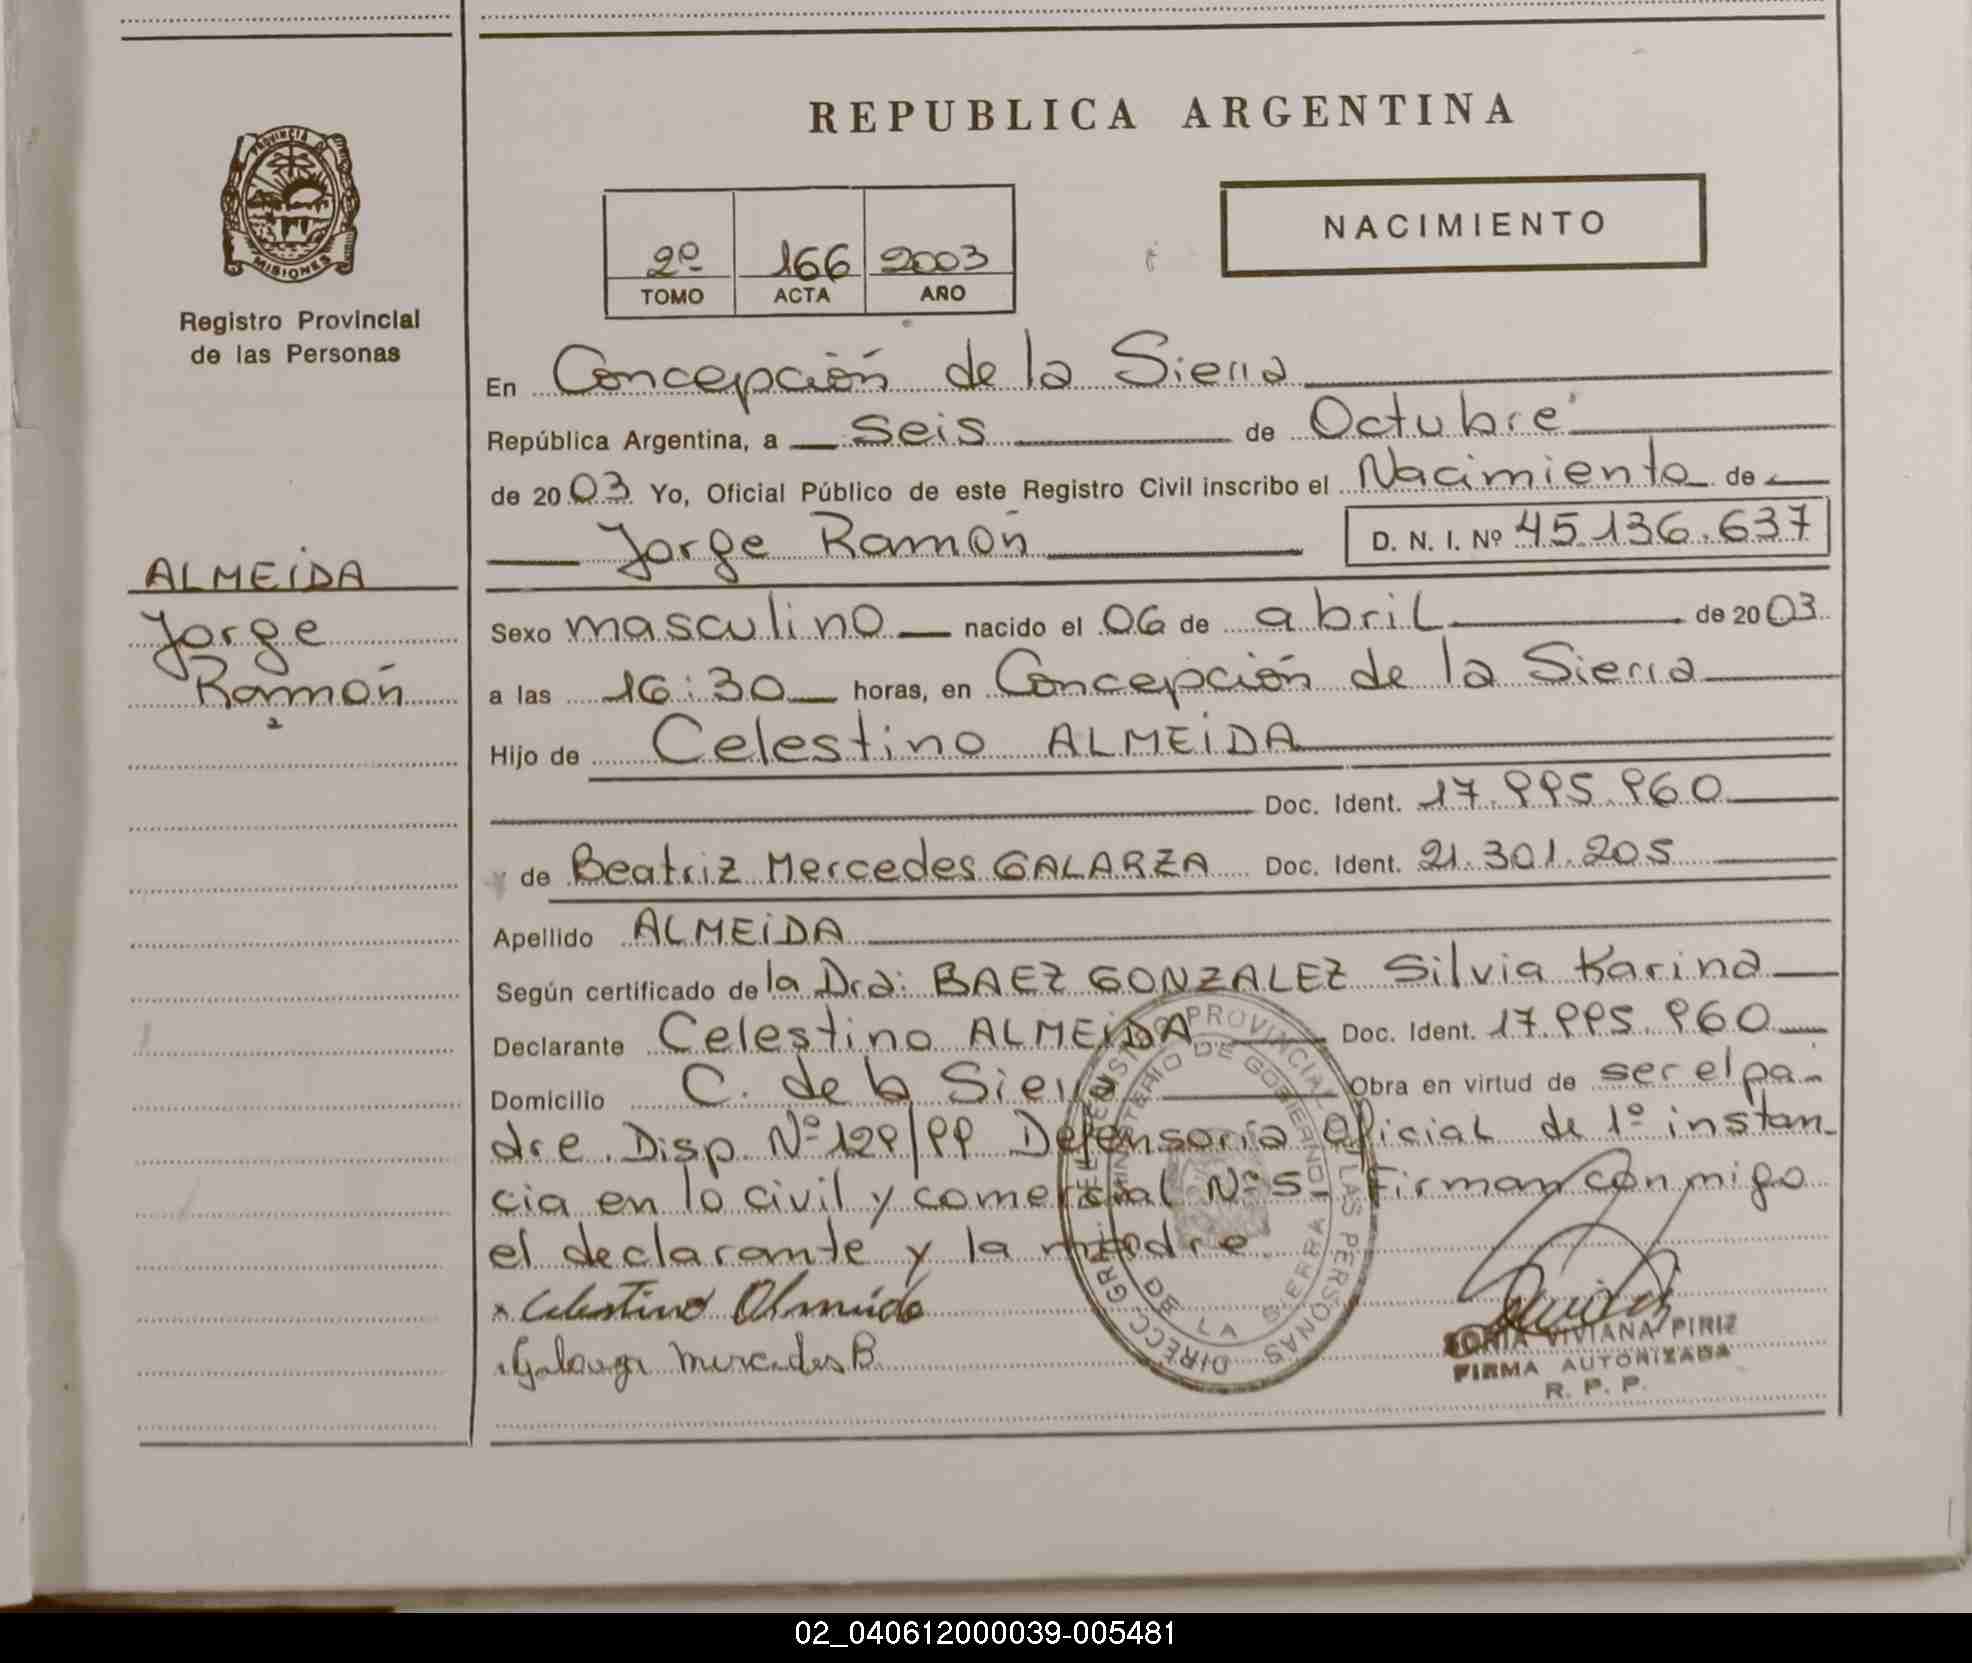 REPUBLICA ARGENTINA
PROVINCIA DE MISIONES
Registro Provincial
de las Personas
2º 166 2003
TOMO ACTA AÑO
NACIMIENTO
En Concepción de la Sierra
República Argentina, a seis de Octubre
de 2003 Yo, Oficial Público de este Registro Civil inscribo el Nacimiento de
Jorge Ramón D. N. I. Nº 45.136.637
ALMEIDA
Jorge
Ramón
Sexo masculino nacido el 06 de abril de 2003
a las 16:30 horas, en Concepción de la Sierra
Hijo de Celestino ALMEIDA
Doc. Ident. 17.995.960
y de Beatriz Mercedes GALARZA Doc. Ident. 21.301.205
Apellido ALMEIDA
Según certificado de la Dra: BAEZ GONZALEZ Silvia Karina
Declarante Celestino ALMEIDA Doc. Ident. 17.995.960
Domicilio C. de la Sierra Obra en virtud de ser el pa-
dre. Disp. Nº 129/99 Defensoría Oficial de 1º instan-
cia en lo civil y comercial Nº 5- Firman conmigo
el declarante y la madre.
x Celestino Almeida
Galarza Mercedes B
SONIA VIVIANA PIRIZ
FIRMA AUTORIZADA
R. P. P.
02_040612000039-005481